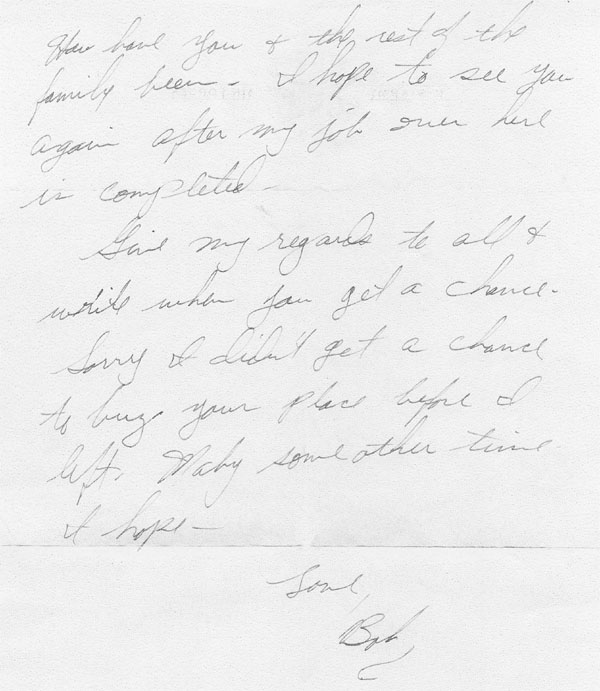 How have you & the rest of the
family been - I hope to see you
again after my job over here
is completed -
Give my regards to all &
write when you get a chance -
Sorry I didn't get a chance
to buzz your place before I
left. Maby some other time
I hope -
Love,
Bob